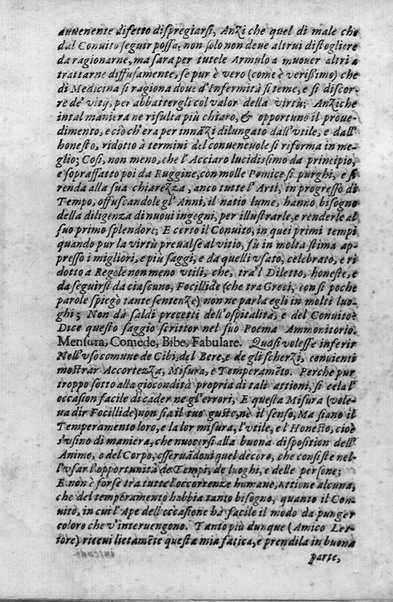 auuenente difetto dispregiarsi, Anzi che quel di male che
dal Conuito seguir possa, non solo non deue altrui distogliere
da ragionarne, ma sara per tutele Armulo a muouer altri a
trattarne diffusamente, se pur è vero (come è verißimo) che
di Medicina si ragiona doue d'Infermità si teme, e si discor-
re de' vitij, per abbattergli col valor della virtù; Anziche
in tal maniera ne risulta più chiaro, & opportuno il proue-
dimento, e ciò ch'era per innãzi dilungato dall'vtile, e dall'
honesto, ridotto à termini del conueneuole si riforma in me-
glio; Così, non meno, che l'Acciaro lucidissimo da principio,
e soprafatto poi da Ruggine, con molle Pomice si purghi, e si
renda alla sua chiarezza, anco tutte l'Arti, in progresso di
Tempo, offuscandole gl' Anni, il natio lume, hanno bisogno
della diligenza di nuoui ingegni, per illustrarle, e renderle al
suo primo splendore; E certo il Conuito, in quei primi tempi,
quando pur la virtù preualse al vitio, fù in molta stima ap-
presso i migliori, e più saggi, e da quelli vsato, celebrato, e ri-
dotto a Regole non meno vtili, che, trà'l Diletto, honeste, e
da seguirsi da ciascuno, Focillide (che tra Greci, con sì poche
parole spiegò tante sentenze) non ne parla egli in molti luo-
ghi; Non dà saldi precetti dell'ospitalità, e del Conuito è
Dice questo saggio scrittor nel suo Poema Ammonitorio.
Mensura, Comede, Bibe, Fabulare. Quasi volesse inferir
Nell'vso comune de Cibi, del Bere, e de gli scherzi, conuienti
mostrar Accortezza, Misura, e Temperamẽto. Perche pur
troppo sotto alla giocondità propria di tali attioni, si cela l'
occasion facile di cader ne gl'errori; E questa Misura (vole-
ua dir Focillide) non sia il tuo gusto, nè il senso, Ma siano il
Temperamento loro, e la lor misura, l'vtile, e l'Honesto, cioè
s'vsino di maniera, che nuocersi alla buona disposition dell'
Animo, o del Corpo, osseruado ui quel decoro, che consiste nel-
l'vsar l'opportunità de Tempi, de luoghi, e delle persone;
E non è forse tra tutte l'occorrenze humane, Attione alcuna,
che del temperamento habbia tanto bisogno, quanto il Con-
uito, in cui l'Ape dell'occasione hà facile il modo da punger
coloro che v'interuengono. Tanto più dunque (Amico Let-
tore) riceui lietamẽte questa mia fatica, e prendila in buona
parte,